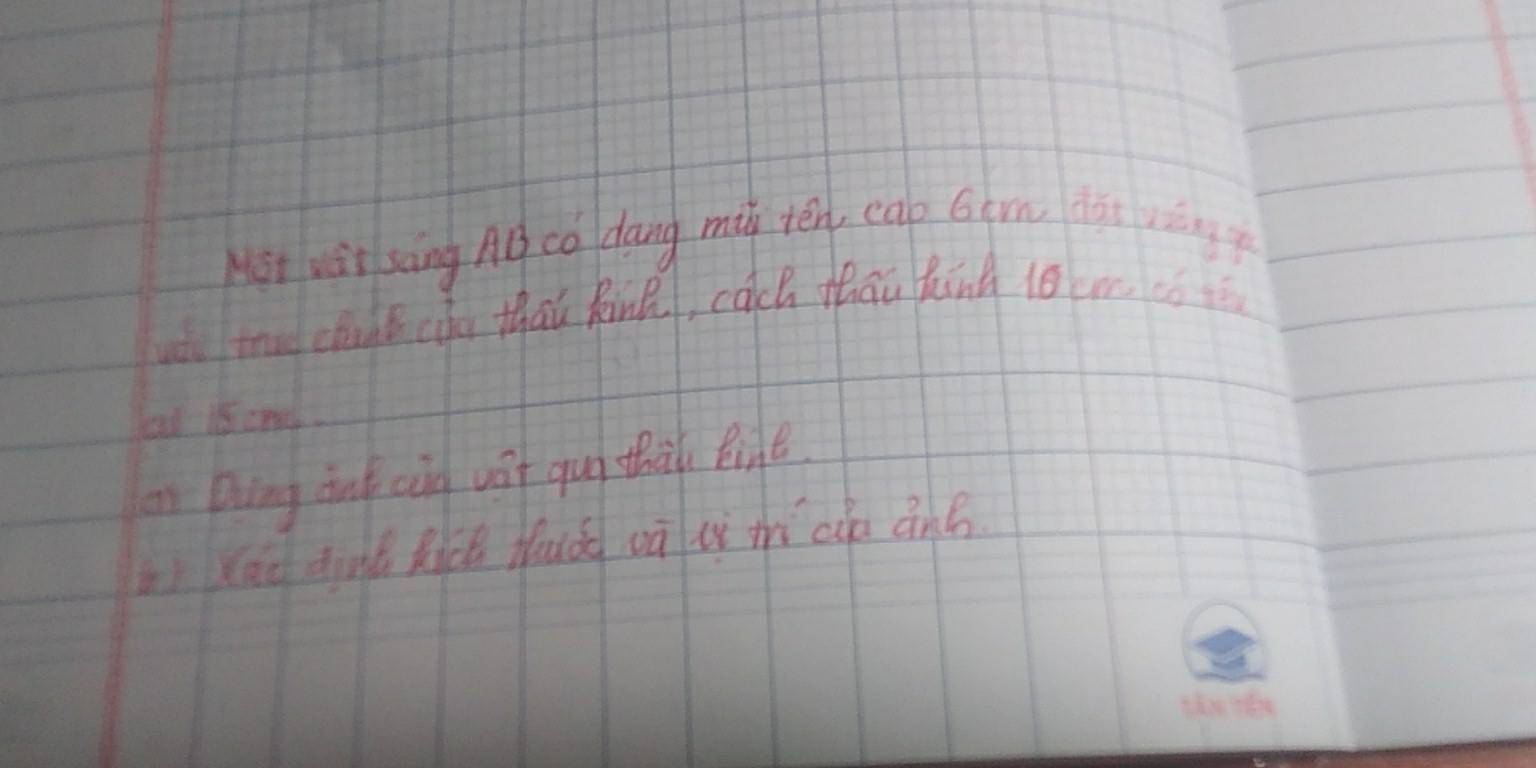 Một vật sáng AB có dạng mũi tên cao 6cm đặt vuông góc
với trục chính của thấu kính, cách thấu kính 10 cm có tiêu
cự 15 cm.
a) Dựng ảnh của vật qua thấu kính.
b) Xác định kích thước và vị trí của ảnh.
TÂN TIẾN